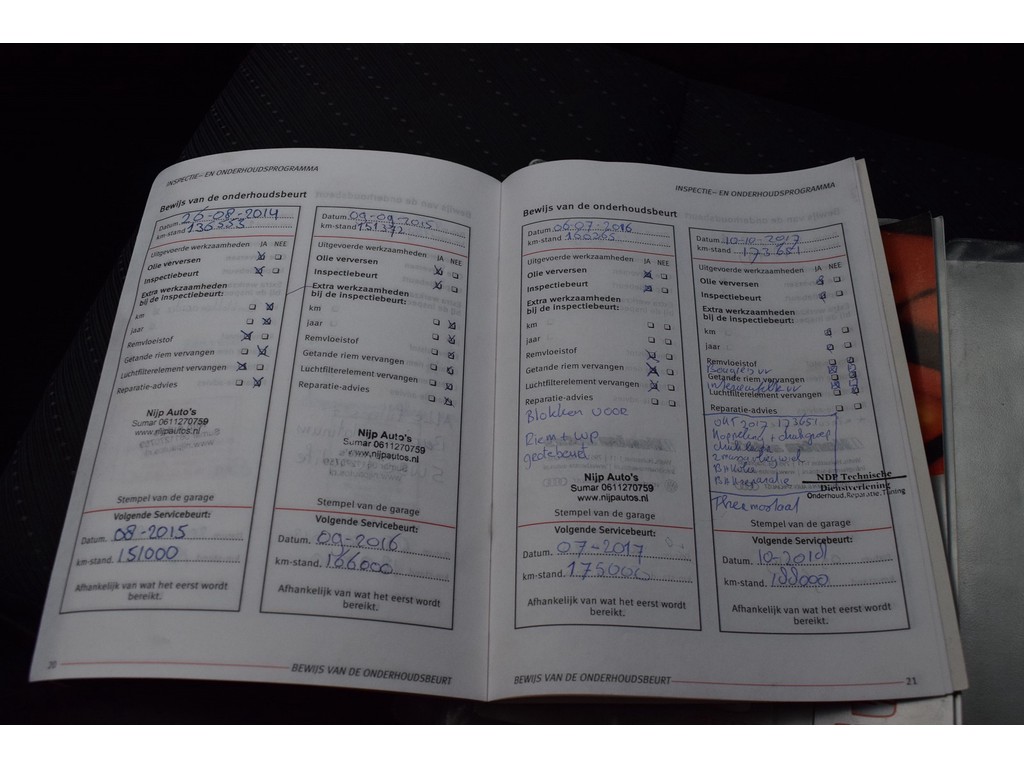 INSPECTIE- EN ONDERHOUDSPROGRAMMA
Bewijs van de onderhoudsbeurt
Datum 26-08-2014
km-stand 136555
Uitgevoerde werkzaamheden JA NEE
Olie verversen
Inspectiebeurt
Extra werkzaamheden
bij de inspectiebeurt:
km
jaar
Remvloeistof
Getande riem vervangen
Luchtfilterelement vervangen
Reparatie-advies
Nijp Auto's
Sumar 0611270759
www.nijpautos.nl
Stempel van de garage
Volgende Servicebeurt:
Datum. 08-2015
km-stand. 151000
Afhankelijk van wat het eerst wordt
bereikt.
Datum 09-09-2015
km-stand 151372
Uitgevoerde werkzaamheden JA NEE
Olie verversen
Inspectiebeurt
Extra werkzaamheden
bij de inspectiebeurt:
km
jaar
Remvloeistof
Getande riem vervangen
Luchtfilterelement vervangen
Reparatie-advies
Nijp Auto's
Sumar 0611270759
www.nijpautos.nl
Stempel van de garage
Volgende Servicebeurt:
Datum. 09-2016
km-stand. 166000
Afhankelijk van wat het eerst wordt
bereikt.
20
BEWIJS VAN DE ONDERHOUDSBEURT
INSPECTIE- EN ONDERHOUDSPROGRAMMA
Bewijs van de onderhoudsbeurt
Datum 06-07-2016
km-stand 160265
Uitgevoerde werkzaamheden JA NEE
Olie verversen
Inspectiebeurt
Extra werkzaamheden
bij de inspectiebeurt:
km
jaar
Remvloeistof
Getande riem vervangen
Luchtfilterelement vervangen
Reparatie-advies
Blokken voor
Riem + WP
gedebeurd
Nijp Auto's
Sumar 0611270759
www.nijpautos.nl
Stempel van de garage
Volgende Servicebeurt:
Datum. 07-2017
km-stand. 175000
Afhankelijk van wat het eerst wordt
bereikt.
Datum 10-10-2017
km-stand 173651
Uitgevoerde werkzaamheden JA NEE
Olie verversen
Inspectiebeurt
Extra werkzaamheden
bij de inspectiebeurt:
km
jaar
Remvloeistof
Bougies vv
Getande riem vervangen
Interieurfilter vv
Luchtfilterelement vervangen
Reparatie-advies
okt 2017 173651
Koppeling + drukgroep
druklager
NDP Technische
Dienstverlening
Onderhoud.Reparatie.Tuning
Thermostaat
Stempel van de garage
Volgende Servicebeurt:
Datum. 10-2018
km-stand. 188000
Afhankelijk van wat het eerst wordt
bereikt.
BEWIJS VAN DE ONDERHOUDSBEURT
21